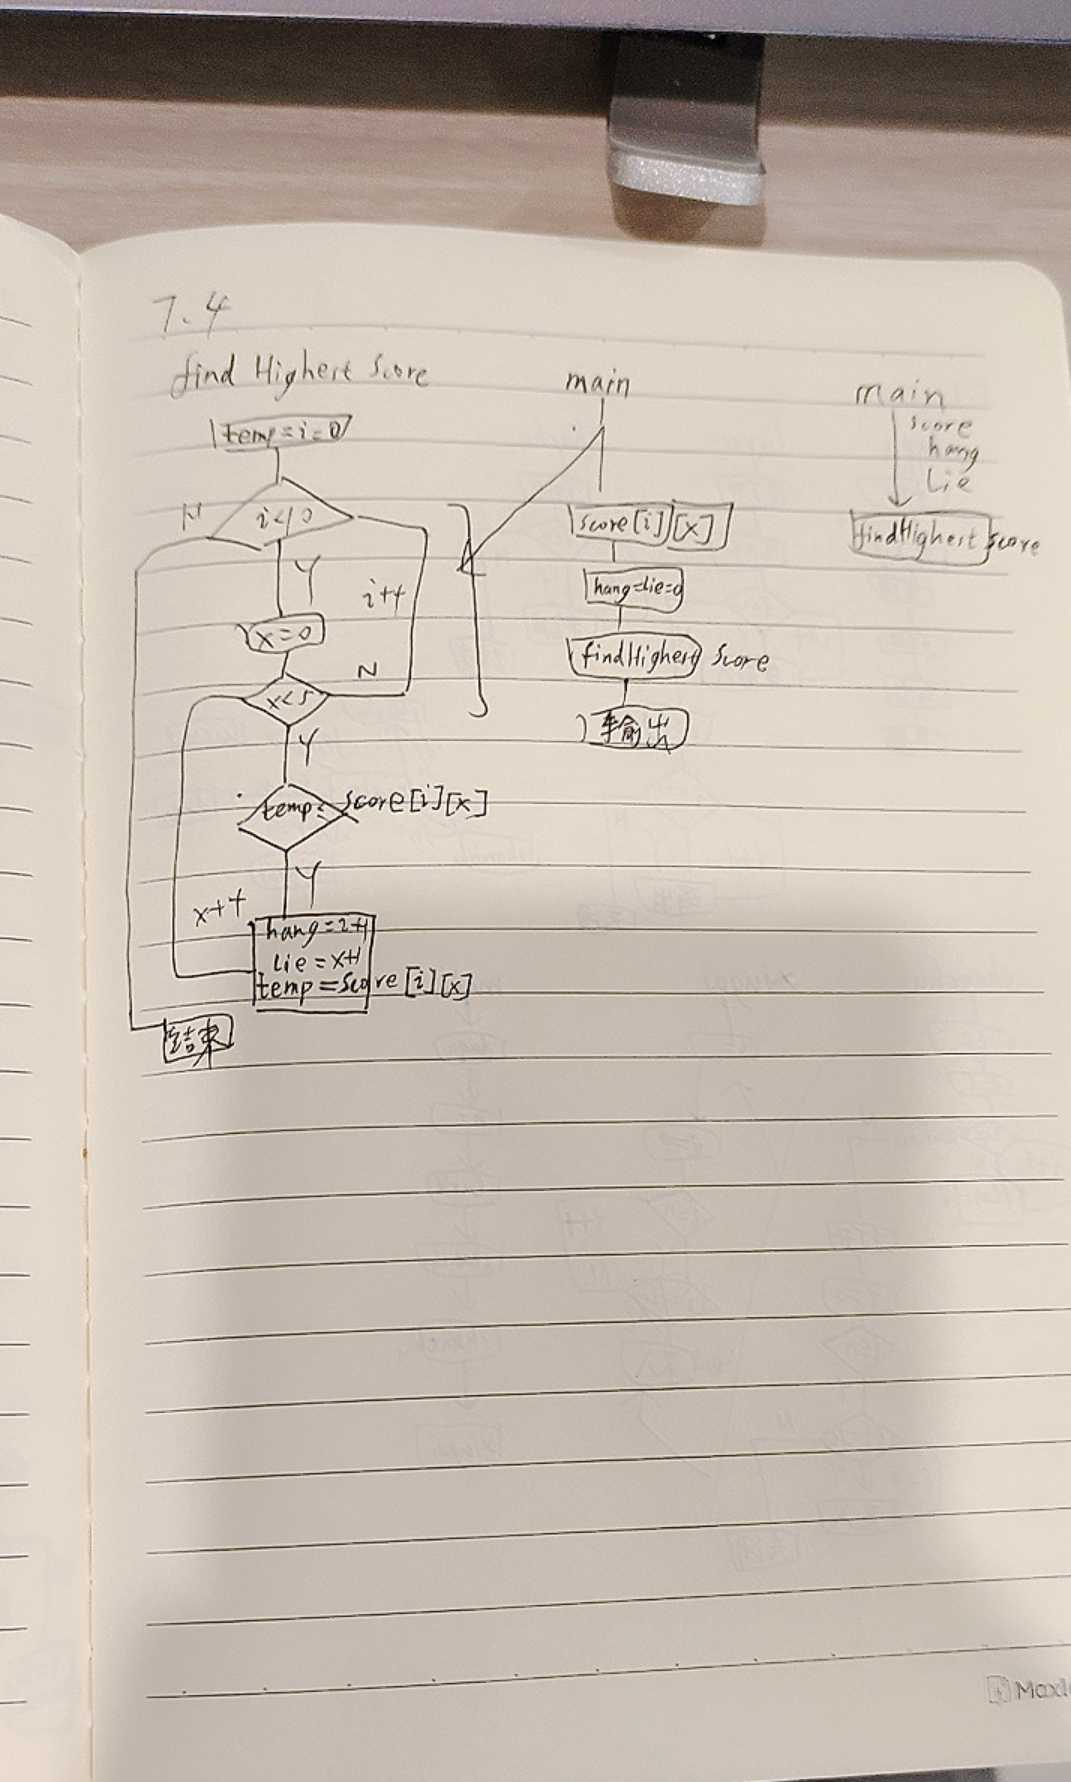 7.4
find Highest Score
temp=i=0
i<10
N
Y
i++
x=0
N
x<5
Y
temp< score[i][x]
Y
x++
hang=i+1
lie=x+1
temp=score[i][x]
结束
main
score[i][x]
hang=lie=0
findHighest Score
输出
main
score
hang
Lie
findHighest Score